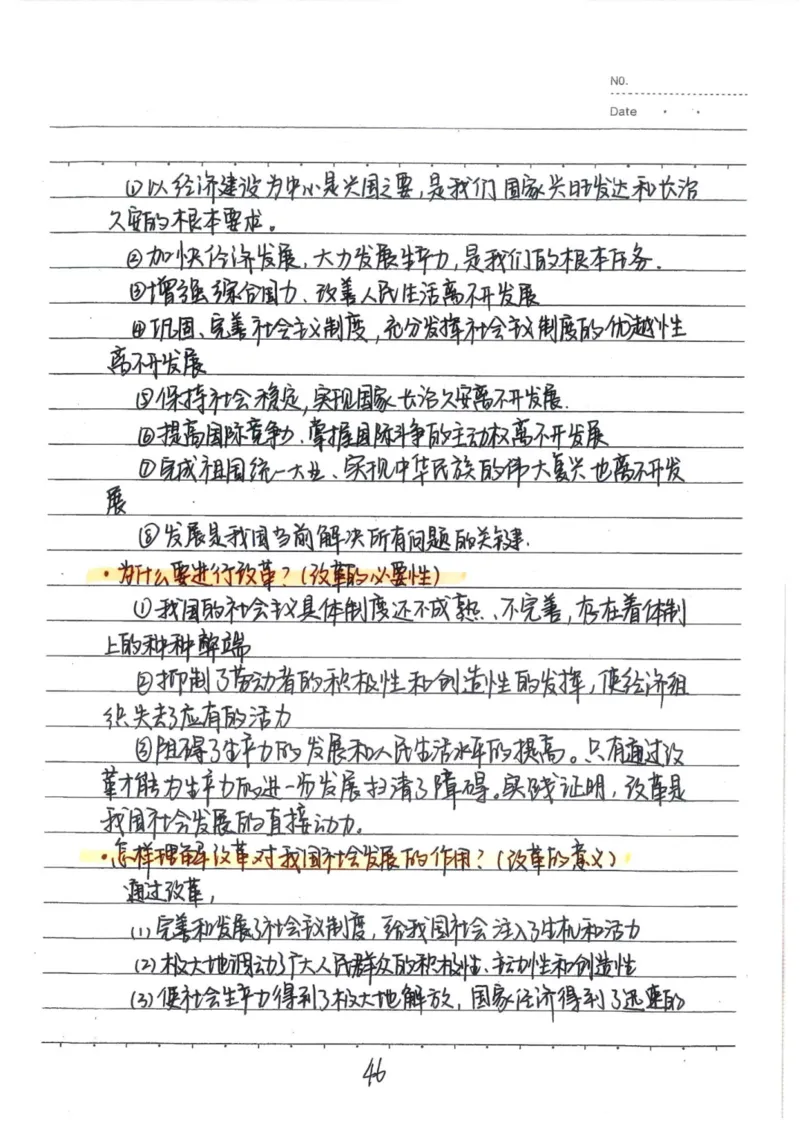 NO.
Date
①以经济建设为中心是兴国之要，是我们国家兴旺发达和长治
久安的根本要求。
②加快经济发展，大力发展生产力，是我们的根本任务.
③增强综合国力、改善人民生活离不开发展
④巩固、完善社会主义制度，充分发挥社会主义制度的优越性
离不开发展
⑤保持社会稳定，实现国家长治久安离不开发展.
⑥提高国际竞争力、掌握国际斗争的主动权离不开发展
⑦完成祖国统一大业、实现中华民族的伟大复兴也离不开发
展
⑧发展是我国当前解决所有问题的关键.
·为什么要进行改革？(改革的必要性)
①我国的社会主义具体制度还不成熟、不完善，存在着体制
上的种种弊端
②抑制了劳动者的积极性和创造性的发挥，使经济组
织失去了应有的活力
③阻碍了生产力的发展和人民生活水平的提高。只有通过改
革才能为生产力的进一步发展扫清了障碍。实践证明，改革是
我国社会发展的直接动力。
·怎样理解改革对我国社会发展的作用？(改革的意义)
通过改革，
(1)完善和发展了社会主义制度，给我国社会注入了生机和活力
(2)极大地调动了广大人民群众的积极性、主动性和创造性
(3)使社会生产力得到了极大地解放，国家经济得到了迅速的
46